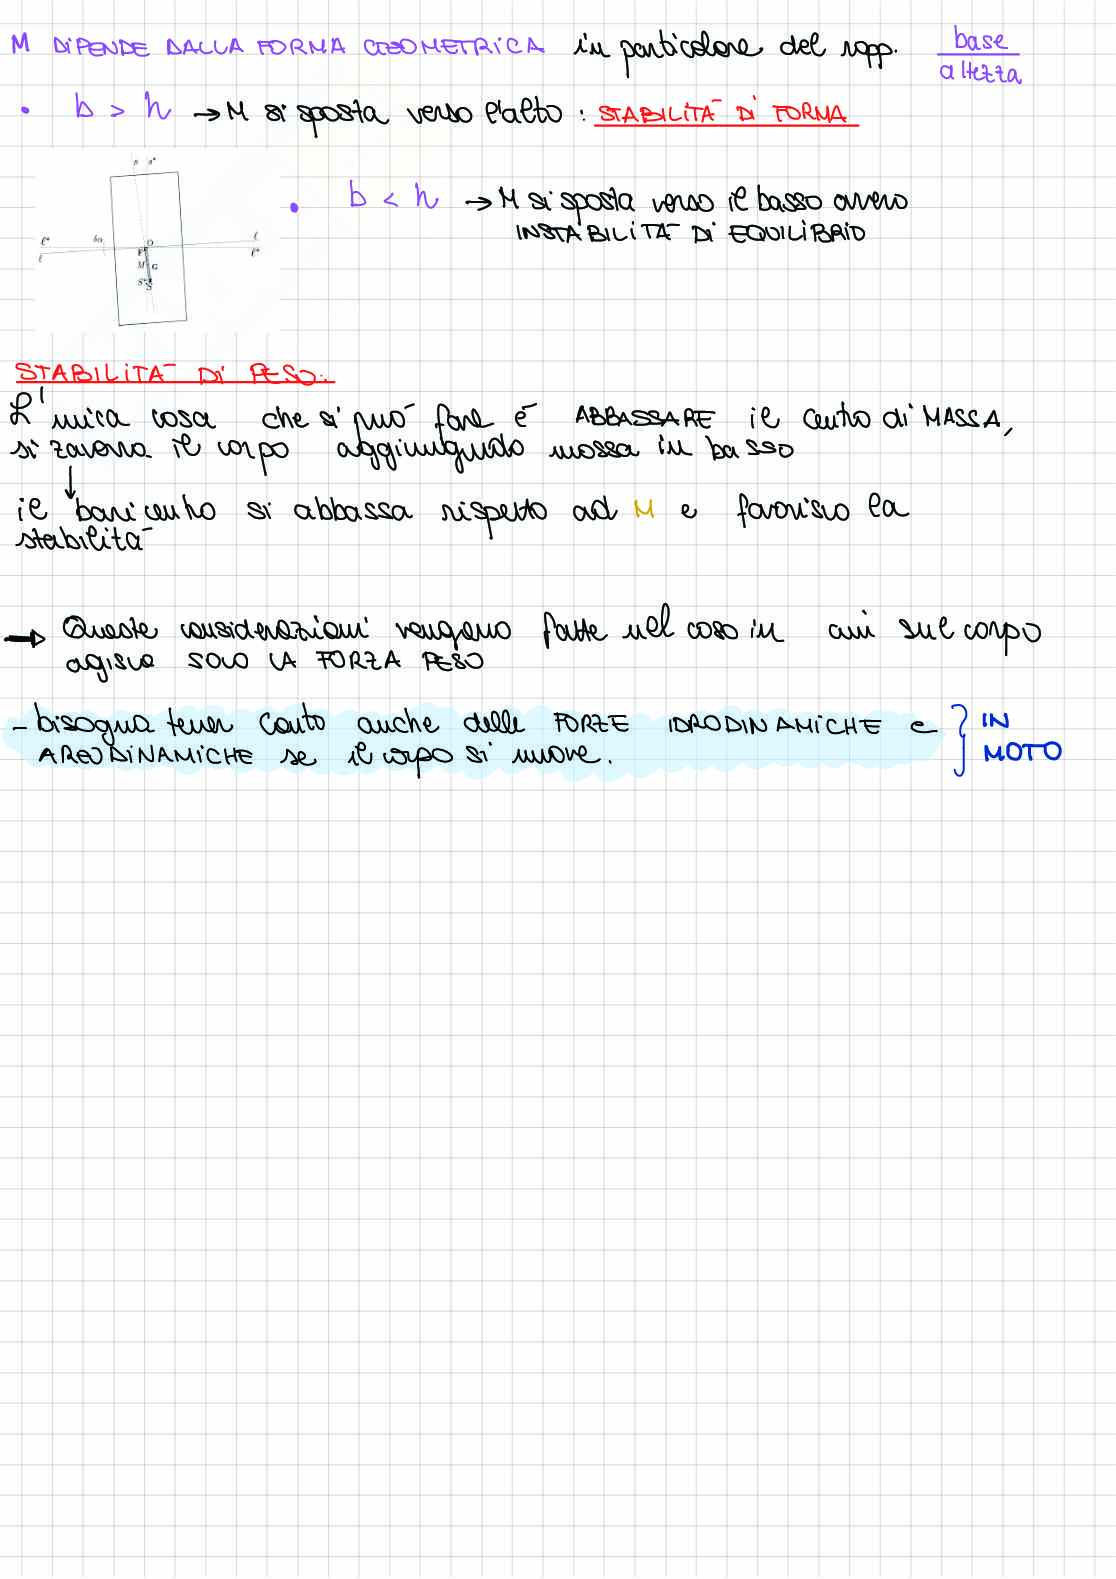 M DIPENDE DALLA FORMA GEOMETRICA in particolare del rapp. base
altezza
• b > h → M si sposta verso l'alto : STABILITÀ DI FORMA
• b < h → M si sposta verso il basso ovvero
INSTABILITÀ DI EQUILIBRIO
O
F
M G
S* S
STABILITÀ DI PESO:
L'unica cosa che si può fare è ABBASSARE il centro di MASSA,
si zavorra il corpo aggiungendo massa in basso
↓
il baricentro si abbassa rispetto ad M e favorisco la
stabilità
→ Queste considerazioni vengono fatte nel caso in cui sul corpo
agisca SOLO LA FORZA PESO
- bisogna tener conto anche delle FORZE IDRODINAMICHE e } IN
AREODINAMICHE se il corpo si muove. MOTO